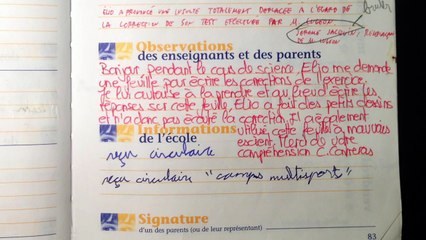 ELIO A PRONONCÉ UNE INSULTE TOTALEMENT DÉPLACÉE À L'ÉGARD DE
LA CORRECTION DE SON TEST EFFECTUÉE PAR M. LUGEON
JÉRÔME JAQUIN, REMPLAÇANT
DE M. LUGEON
Observations
des enseignants et des parents
Bonjour, pendant le cours de science, Elio me demande
une feuille pour écrire les corrections de l'exercice.
Je lui autorise à la prendre et au lieu d'écrire les
réponses sur cette feuille, Elio a fait des petits dessins
et n'a donc pas écouté la correction. Il a également
utilisé cette feuille à mauvais
escient. Merci de votre
compréhension C. Carreras
Informations
de l'école
reçu circulaire
reçu circulaire "campus multisport"
Signature
d'un des parents (ou de leur représentant)
83